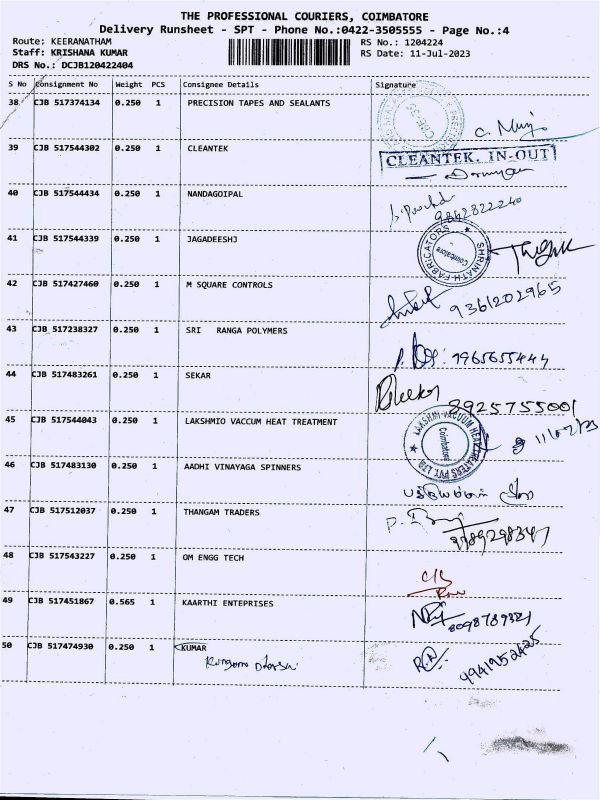 THE PROFESSIONAL COURIERS, COIMBATORE
Delivery Runsheet - SPT - Phone No.:0422-3505555 - Page No.:4
Route: KEERANATHAM RS No.: 1204224
Staff: KRISHANA KUMAR RS Date: 11-Jul-2023
DRS No.: DCJB120422404
S No Consignment No Weight PCS Consignee Details Signature
38 CJB 517374134 0.250 1 PRECISION TAPES AND SEALANTS
39 CJB 517544302 0.250 1 CLEANTEK CLEANTEK. IN-OUT
40 CJB 517544434 0.250 1 NANDAGOIPAL 9862822240
41 CJB 517544339 0.250 1 JAGADEESHJ SHRINATH FABRICATORS Coimbatore
42 CJB 517427460 0.250 1 M SQUARE CONTROLS 9361202965
43 CJB 517238327 0.250 1 SRI RANGA POLYMERS 7965655444
44 CJB 517483261 0.250 1 SEKAR 8925755001
45 CJB 517544043 0.250 1 LAKSHMIO VACCUM HEAT TREATMENT LAKSHMI VACUUM HEAT TREATERS PVT. LTD. Coimbatore
46 CJB 517483130 0.250 1 AADHI VINAYAGA SPINNERS
47 CJB 517512037 0.250 1 THANGAM TRADERS
48 CJB 517543227 0.250 1 OM ENGG TECH
49 CJB 517451867 0.565 1 KAARTHI ENTEPRISES 8098789321
50 CJB 517474930 0.250 1 KUMAR 9941952425